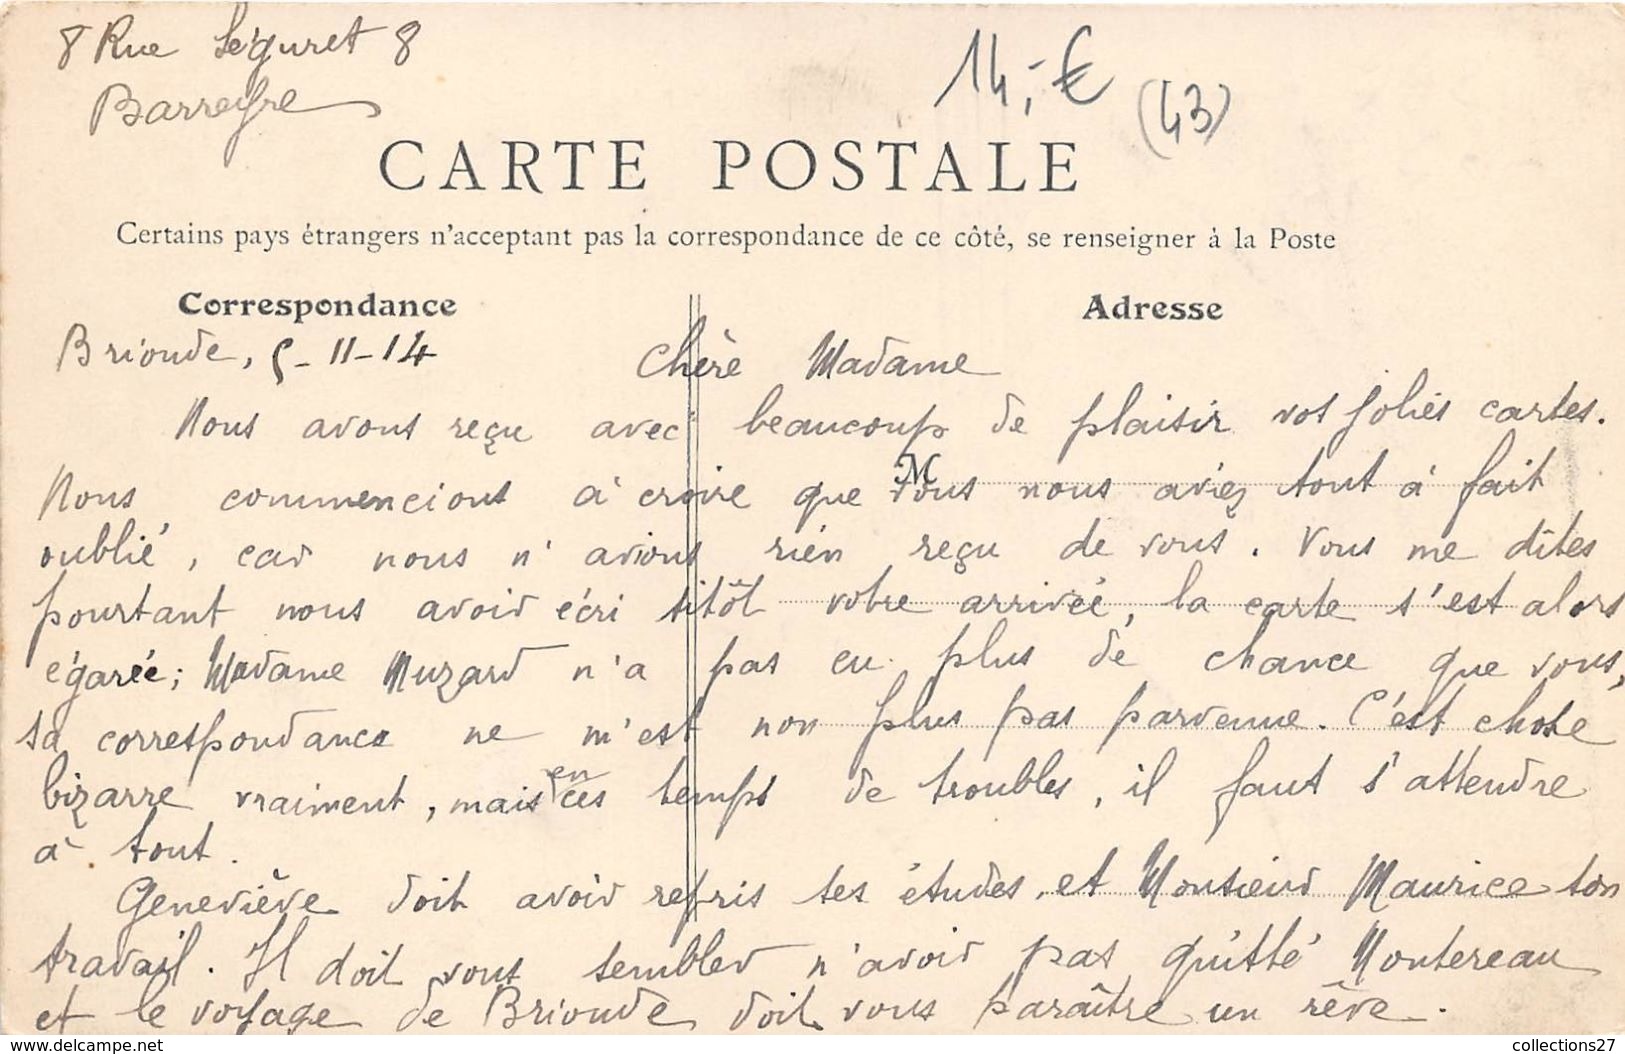 8 Rue Séguret 8
Barreyre
14,-€
(43)
CARTE POSTALE
Certains pays étrangers n'acceptant pas la correspondance de ce côté, se renseigner à la Poste
Correspondance
Adresse
Brioude, 5-11-14
Chère Madame
Nous avons reçu avec beaucoup de plaisir vos jolies cartes.
M
Nous commencions à croire que vous nous aviez tout à fait
oublié, car nous n'avions rien reçu de vous. Vous me dites
pourtant nous avoir écri sitôt votre arrivée, la carte s'est alors
égarée; Madame Muzard n'a pas eu plus de chance que vous,
sa correspondance ne m'est non plus pas parvenue. C'est chose
bizarre vraiment, mais en ces temps de troubles, il faut s'attendre
à tout.
Geneviève doit avoir repris ses études, et Monsieur Maurice son
travail. Il doit vous sembler n'avoir pas quitté Montereau
et le voyage de Brioude doit vous paraître un rêve.
www.delcampe.net
collections27